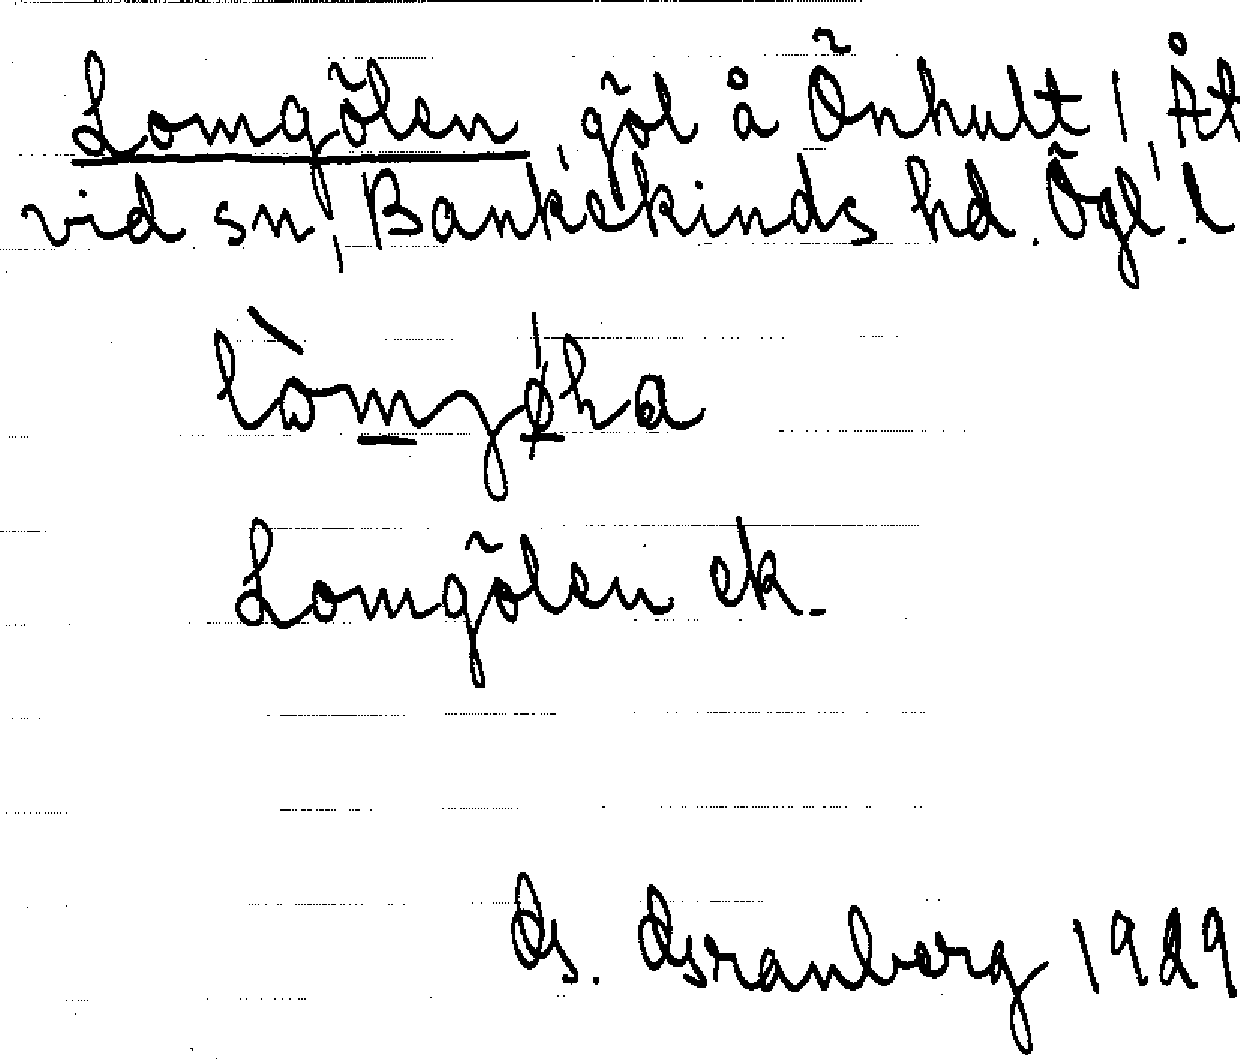 Lomgölen, göl å Önhult, Åt
vid sn, Bankekinds hd. Ögl. l
Lomgölen ek.
G. Granberg 1929